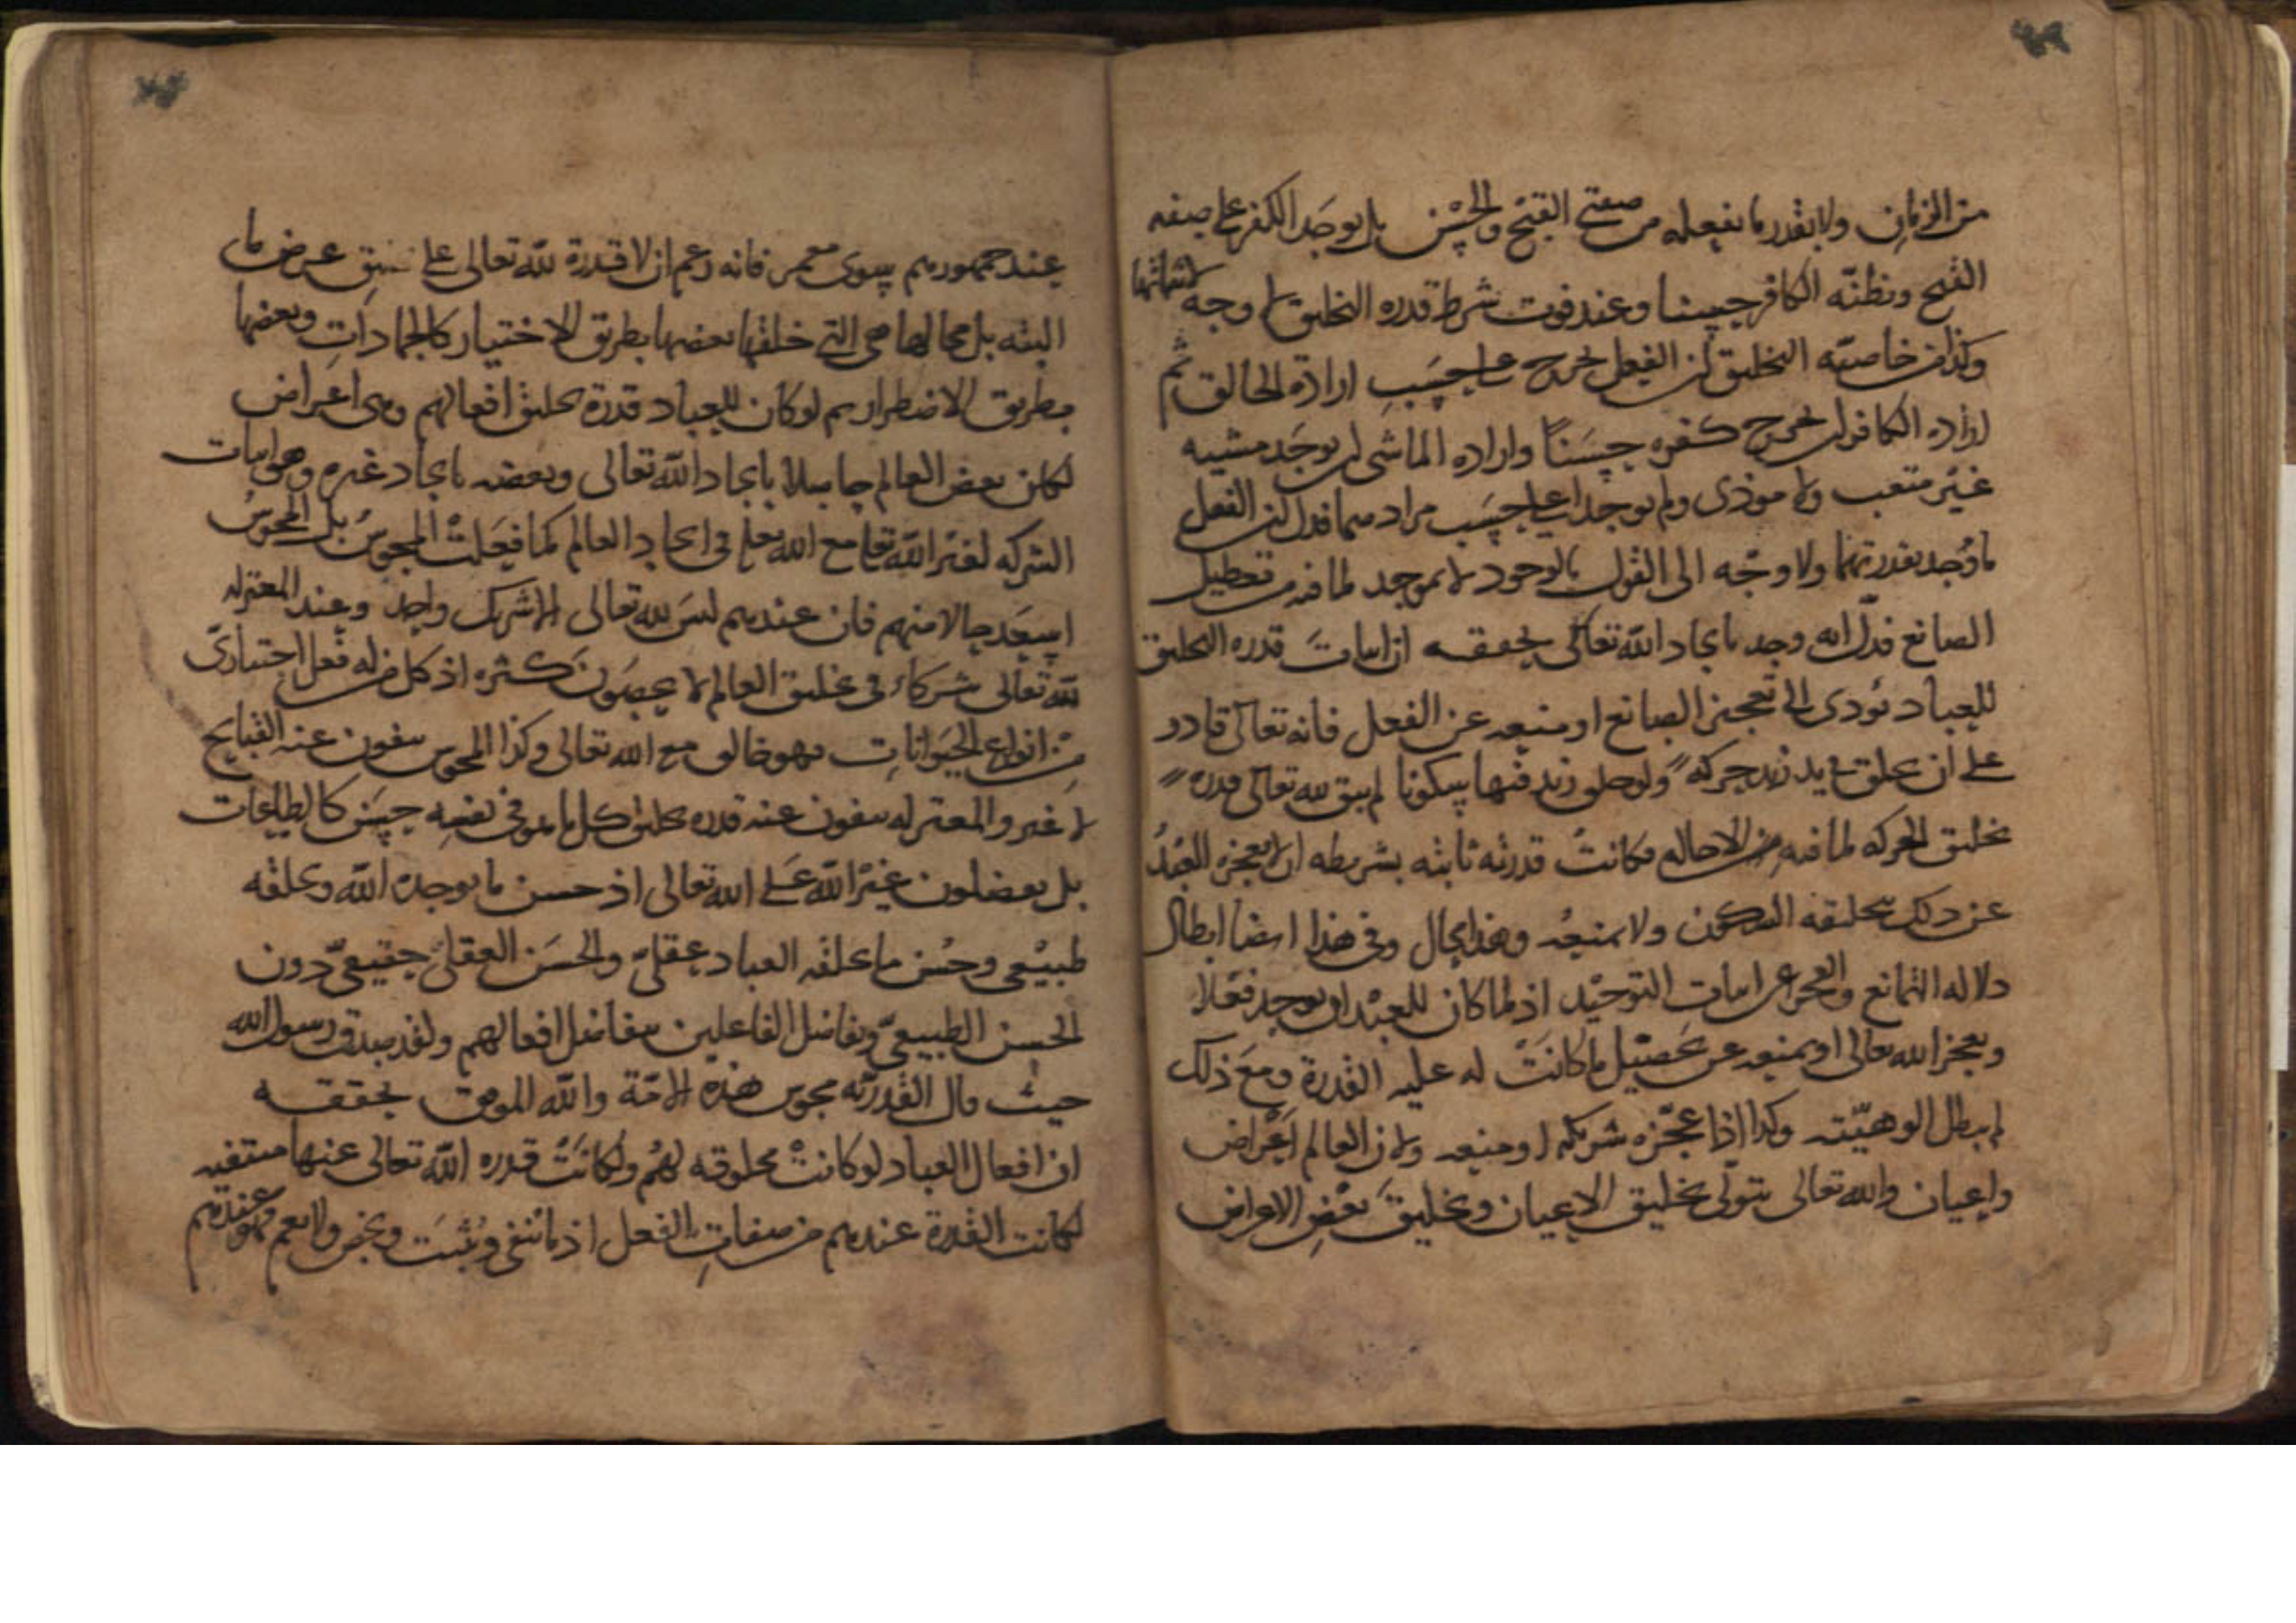 من الزمان ولا بقدر ما يفعله من صفتي القبح والحسن بل يوجد الكفر على صفة
القبح ويظنه الكافر حسنا وعند فوت شرط قدرة التخليق لا وجه لاثباتها
وكذا من خاصية التخليق ان الفعل يخرج على حسب ارادة الخالق ثم
اراد الكافر ان يخرج كفره حسنا واراد الماشي ان يوجد مشيه
غير متعب ولا موذي ولم يوجدا على حسب مرادهما فدل ان الفعل
ما وجد بقدرتهما ولا وجه الى القول بالوجود لا بموجد لما فيه من تعطيل
الصانع فدل انه وجد بايجاد الله تعالى يحققه ان اثبات قدرة التخليق
للعباد يؤدى الى تعجيز الصانع او منعه عن الفعل فانه تعالى قادر
على ان يخلق في يد زيد حركة ولو خلق زيد فيها سكونا لم يبق لله تعالى قدرة
تخليق الحركة لما فيه من الاحالة فكانت قدرته ثابته بشريطة ان لا يعجزه العبد
عن ذلك بتخليقه السكون ولا يمنعه وهذا محال وفي هذا ايضا ابطال
دلالة التمانع والعجز عن اثبات التوحيد اذ لما كان للعبد ان يوجد فعلا
ويعجز الله تعالى او يمنعه عن تحصيل ما كانت له عليه القدرة ومع ذلك
لم يبطل الوهيته وكذا اذا عجزه شريكه او منعه ولان العالم اعراض
واعيان والله تعالى يتولى تخليق الاعيان وتخليق بعض الاعراض
عند جمهورهم سوى معمر فانه زعم ان لا قدرة لله تعالى على عرض ما
البتة بل محالها هي التي خلقتها بعضها بطريق الاختيار كالجمادات وبعضها
بطريق الاضطرار ثم لو كان للعباد قدرة تخليق افعالهم وهي اعراض
لكان بعض العالم حاصلا بايجاد الله تعالى وبعضه بايجاد غيره وهو اثبات
الشركة لغير الله تعا مع الله تعلى في ايجاد العالم كما فعلت المجوس بل المجوس
اسعد حالا منهم فان عندهم ليس لله تعالى الا شريك واحد وعند المعتزلة
لله تعالى شركاء في تخليق العالم لا يحصون كثرة اذ كل من له فعل اختياري
من انواع الحيوانات فهو خالق مع الله تعالى وكذا المجوس ينفون عنه القبايح
لا غير والمعتزلة ينفون عنه قدرة تخليق كل ما هو في نفسه حسن كالطاعات
بل يفضلون غير الله على الله تعالى اذ حسن ما يوجده الله ويخلقه
طبيعي وحسن ما يخلقه العباد عقلي والحسن العقلي حقيقي دون
الحسن الطبيعي وتفاضل الفاعلين بتفاضل افعالهم ولقد صدق رسول الله
حيث قال القدرية مجوس هذه الامة والله الموفق يحققه
ان افعال العباد لو كانت مخلوقة لهم ولكانت قدرة الله تعالى عنها منتفية
لكانت القدرة عندهم من صفات الفعل اذ ما ينفي ويثبت ويخص ولا يعم فهو عندهم